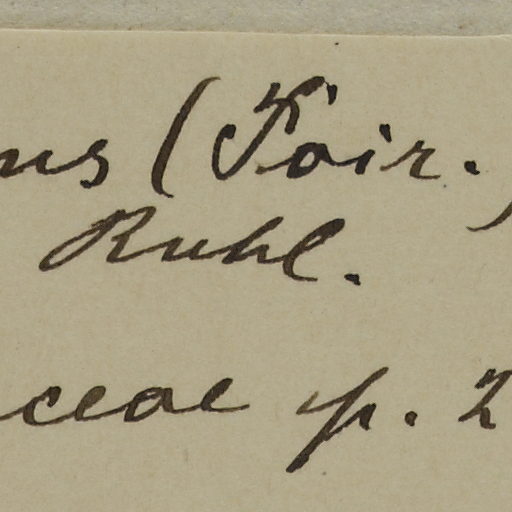 ns (Poir.)
Ruhl.
ceae p. 2